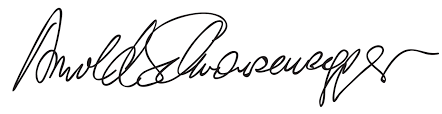 Arnold Schwarzenegger